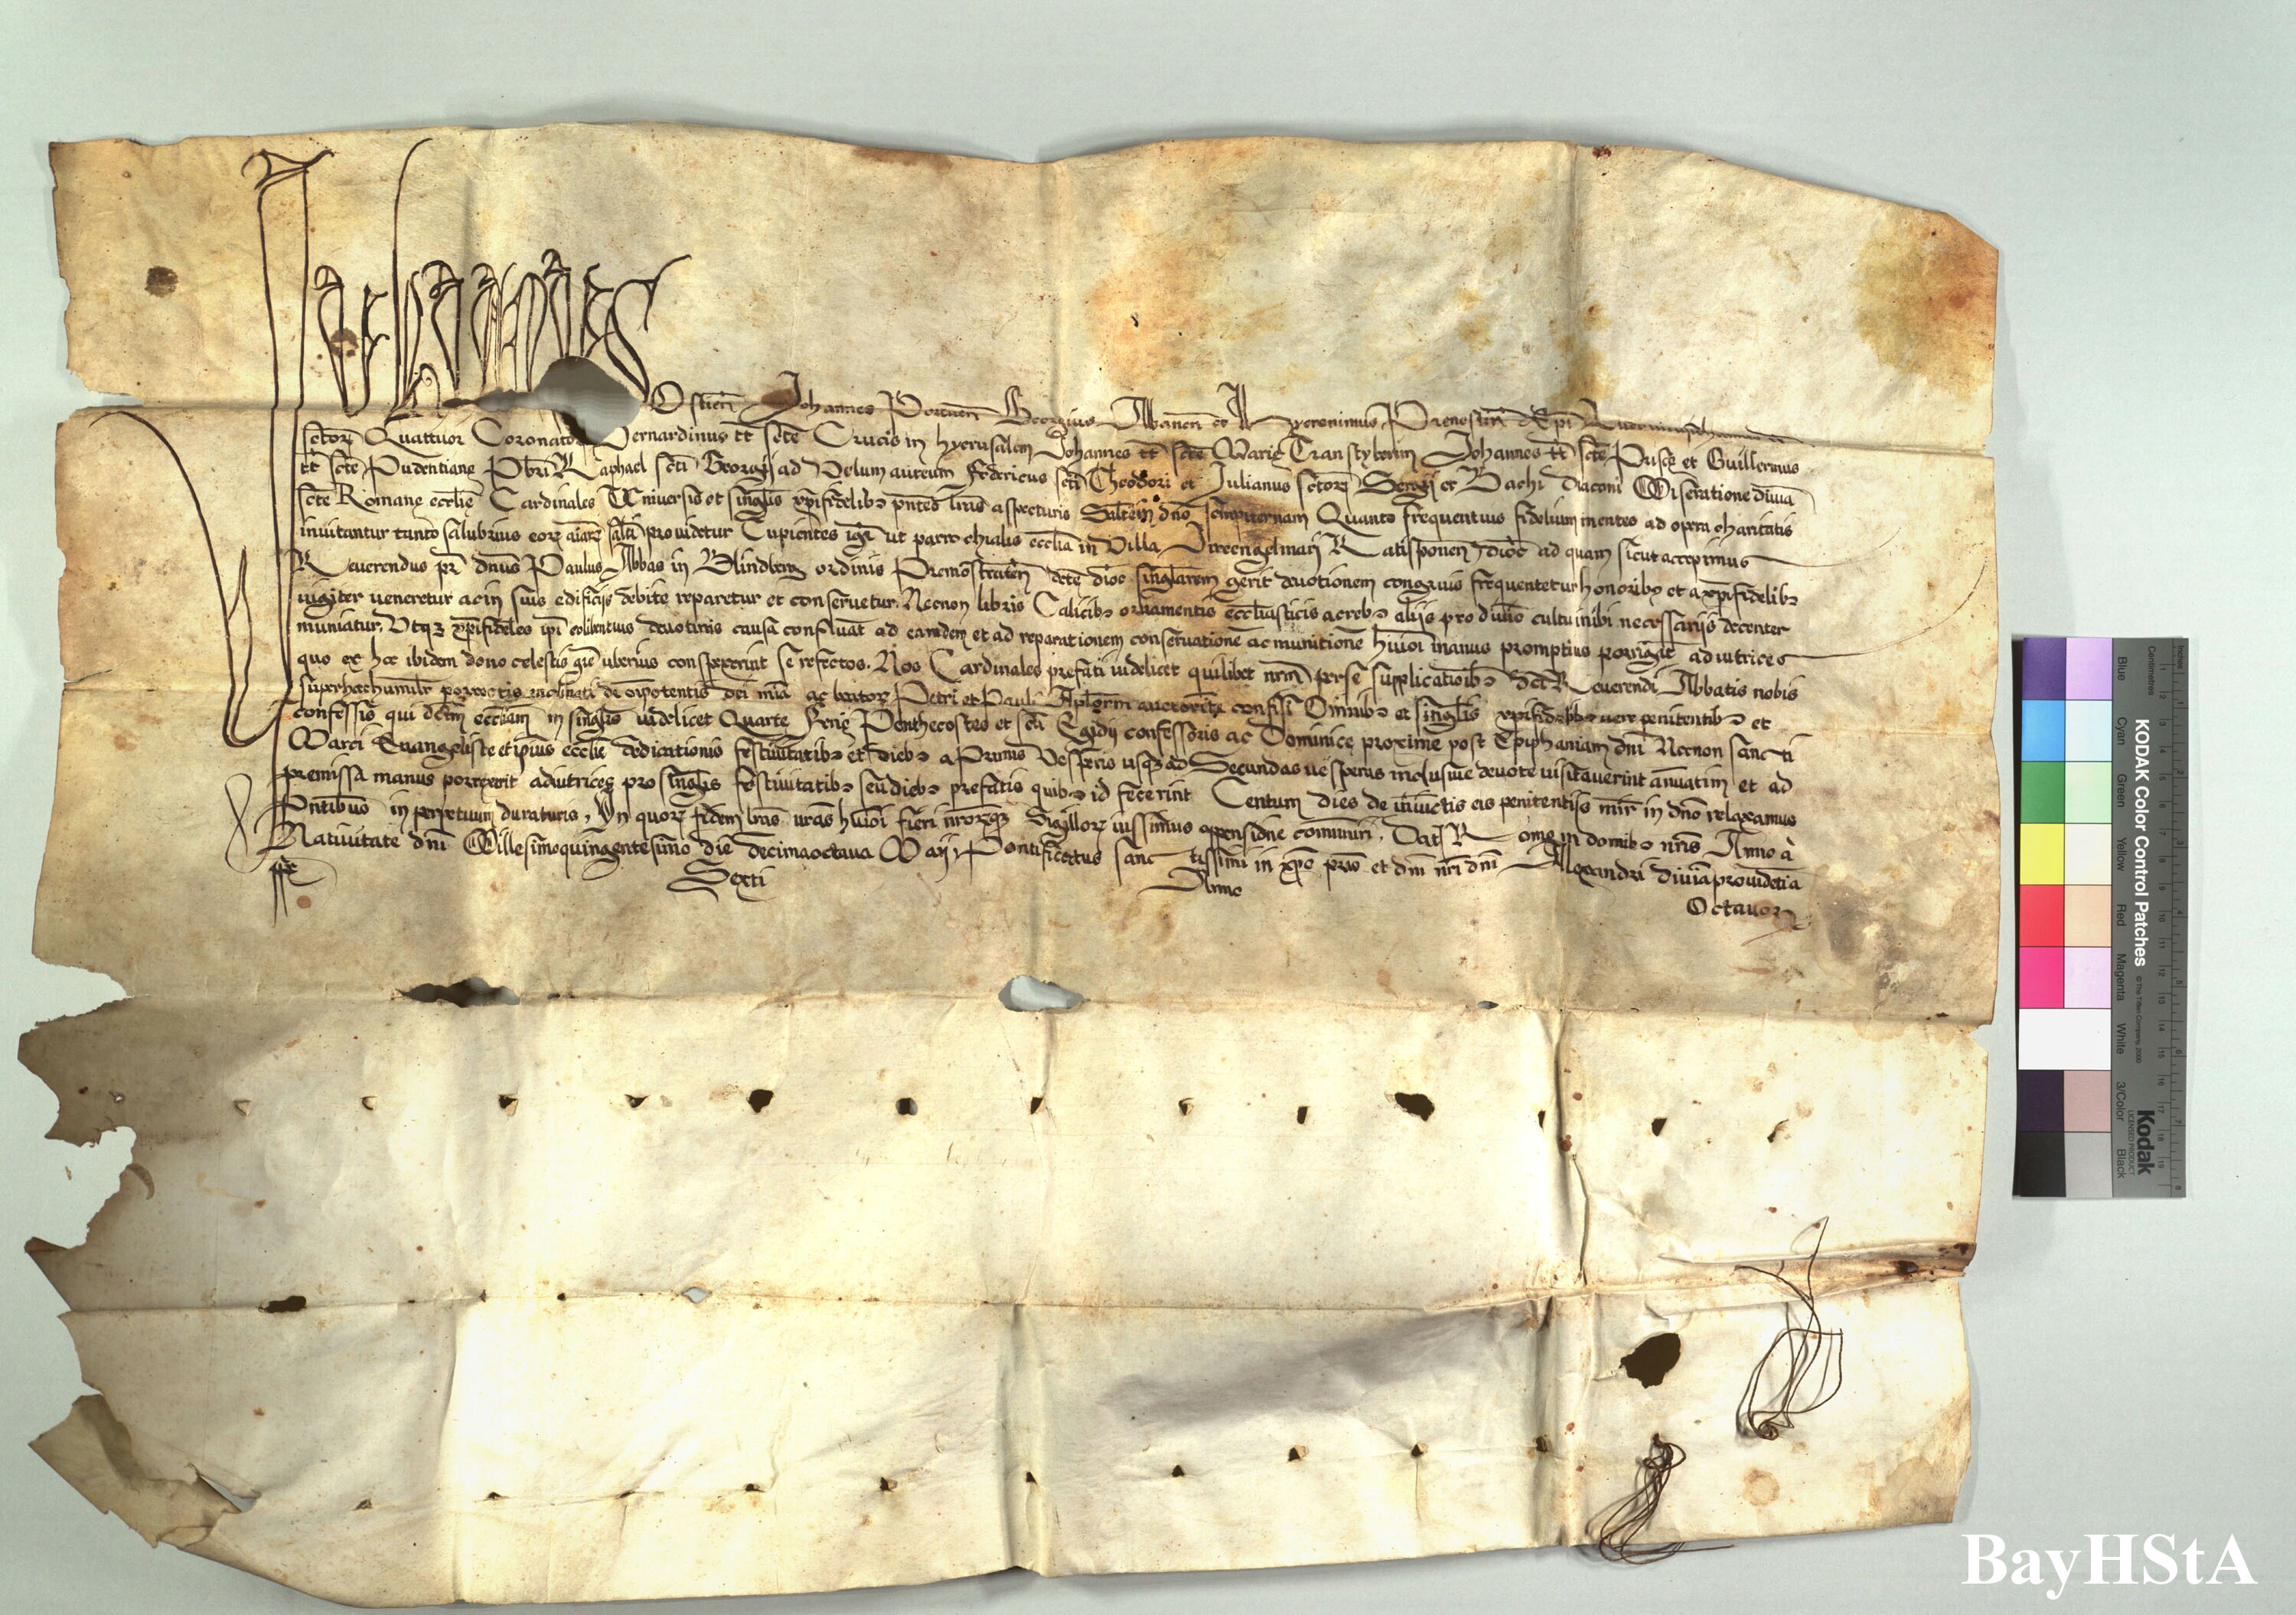 Ostieñ Johannes Portueñ Georgius Albaneñ et Hyeronimus Prenestiñ Epi
sctorꝝ Quattuor Coronatorꝝ Bernardinus tt̄ scte Crucis in hyerusalem Johannes tt̄ scte Marie Transtyberim Johannes tt̄ scte Prisce et Guillermus
tt̄ scte Pudentiane Pbri Raphael scti Georgij ad Velum aureum Federicus scti Theodori et Julianus sctorꝝ Sergij et Bachi Diaconi Miseratione diuīa
scte Romane ecclie Cardinales Vniuersis et singlis xpifidelibꝫ pntes lrās aspecturis Saltem in dno sempiternam Quanto frequentius fidelium mentes ad opera charitatis
inuitantur tanto salubrius eorꝝ aiarꝝ saluti prouidetur Cupientes igr̄ ut parrochialis ecclia in Villa Ratisponeñ dioc̄ ad quam sicut accepimus
Reuerendus pr̄ dnus Paulus Abbas in Blindberg ordinis Premonstrateñ dcte dioc̄ singlarem gerit deuotionem congruis frequentetur honoribꝫ et a xpifidelibꝫ
iugiter ueneretur ac in suis edificijs debite reparetur et conseruetur. Necnon libris Calicibꝫ ornamentis ecclīasticis ac rebꝫ alijs pro diuīo cultu inibi necessarijs decenter
muniatur. Vtqꝫ xpifideles ipi eo libentius deuotiōis causa confluāt ad eamdem et ad reparationem conseruationē ac munitionē hmōi manus promptius porrigāt adiutrices
quo ex hoc ibidem dono celestis grē uberius conspexerint se refectos. Nos Cardinales prefati uidelicet quilibet nrm̄ per se supplicatioībꝫ dcti Reuerendi Abbatis nobis
super hoc humilr̄ porrectis inclinati de oīpotentis dei mīa ac beatorꝝ Petri et Pauli Aplorm auctorite confisi Omnibꝫ et singlis xpifidelibꝫ uere penitentibꝫ et
confessis qui dctam eccliam in singlis uidelicet Quarte ferie Penthecostes et scti Egidij confessoris ac Dominice proxime post Epiphaniam dni Necnon sancti
Marci Euangeliste et ipsius ecclie dedicationis festiuitatibꝫ et diebꝫ a Primis Vesperis usqꝫ ad Secundas uesperas inclusiue deuote uisitauerint annuatim et ad
premissa manus porrexerint adiutrices pro singlis festiuitatibꝫ seu diebꝫ prefatis quibꝫ id fecerint Centum dies de iniunctis eis penitentijs misr̄ in dno relaxamus
Pntibus in perpetuum duraturis. In quorꝝ fidem lrās nrās hmōi fieri nrorꝝqꝫ Sigillorꝝ iussimus appensione commūiri. Dat Rome in domibꝫ nris Anno a
Natiuitate dni Millesimoquingentesimo die decimaoctaua Maij Pontificatus sanctissimi in xpo pris et dni nri dni Alexandri diuīa prouidētia
Sexti Anno Octauo
KODAK Color Control Patches
© The Tiffen Company, 2000
Kodak
LICENSED PRODUCT
Inches
Centimetres
Blue
Cyan
Green
Yellow
Red
Magenta
White
3/Color
Black
BayHStA